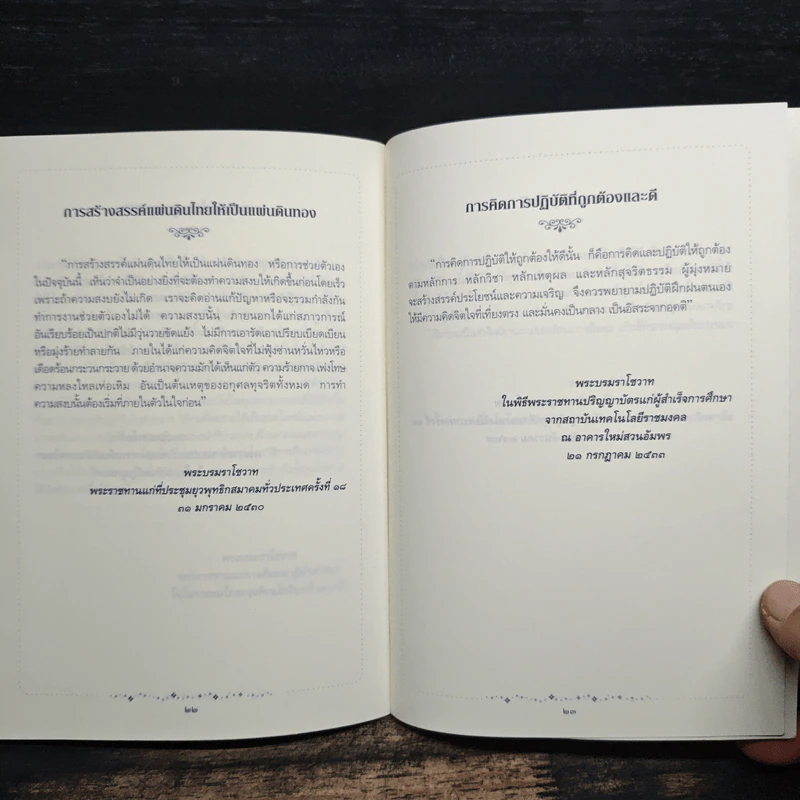 การสร้างสรรค์แผ่นดินไทยให้เป็นแผ่นดินทอง
"การสร้างสรรค์แผ่นดินไทยให้เป็นแผ่นดินทอง หรือการช่วยตัวเอง
ในปัจจุบันนี้ เห็นว่าจำเป็นอย่างยิ่งที่จะต้องทำความสงบให้เกิดขึ้นก่อนโดยเร็ว
เพราะถ้าความสงบยังไม่เกิด เราจะคิดอ่านแก้ปัญหาหรือจะรวมกำลังกัน
ทำการงานช่วยตัวเองไม่ได้ ความสงบนั้น ภายนอกได้แก่สภาวการณ์
อันเรียบร้อยเป็นปกติไม่มีวุ่นวายขัดแย้ง ไม่มีการเอารัดเอาเปรียบเบียดเบียน
หรือมุ่งร้ายทำลายกัน ภายในได้แก่ความคิดจิตใจที่ไม่ฟุ้งซ่านหวั่นไหวหรือ
เดือดร้อนกระวนกระวาย ด้วยอำนาจความมักได้เห็นแก่ตัว ความร้ายกาจ เพ่งโทษ
ความหลงใหลเห่อเหิม อันเป็นต้นเหตุของอกุศลทุจริตทั้งหมด การทำ
ความสงบนั้นต้องเริ่มที่ภายในตัวในใจก่อน"
พระบรมราโชวาท
พระราชทานแก่ที่ประชุมยุวพุทธิกสมาคมทั่วประเทศครั้งที่ ๑๘
๓๑ มกราคม ๒๕๓๐
๒๒
การคิดการปฏิบัติที่ถูกต้องและดี
"การคิดการปฏิบัติให้ถูกต้องให้ดีนั้น ก็คือการคิดและปฏิบัติให้ถูกต้อง
ตามหลักการ หลักวิชา หลักเหตุผล และหลักสุจริตธรรม ผู้มุ่งหมาย
จะสร้างสรรค์ประโยชน์และความเจริญ จึงควรพยายามปฏิบัติฝึกฝนตนเอง
ให้มีความคิดจิตใจที่เที่ยงตรง และมั่นคงเป็นกลาง เป็นอิสระจากอคติ"
พระบรมราโชวาท
ในพิธีพระราชทานปริญญาบัตรแก่ผู้สำเร็จการศึกษา
จากสถาบันเทคโนโลยีราชมงคล
ณ อาคารใหม่สวนอัมพร
๒๑ กรกฎาคม ๒๕๓๓
๒๓